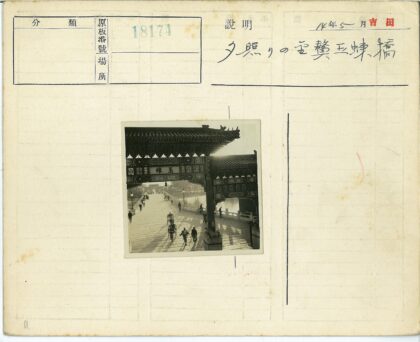 分類
原板番號
18174
場所
說明
14年5月
夕照りの金鰲玉蝀橋